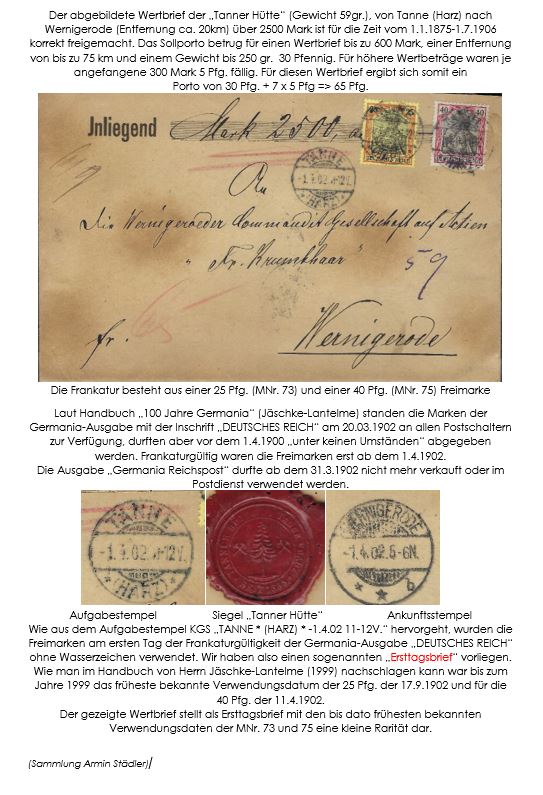 Der abgebildete Wertbrief der „Tanner Hütte“ (Gewicht 59gr.), von Tanne (Harz) nach
Wernigerode (Entfernung ca. 20km) über 2500 Mark ist für die Zeit vom 1.1.1875-1.7.1906
korrekt freigemacht. Das Sollporto betrug für einen Wertbrief bis zu 600 Mark, einer Entfernung
von bis zu 75 km und einem Gewicht bis 250 gr.  30 Pfennig. Für höhere Wertbeträge waren je
angefangene 300 Mark 5 Pfg. fällig. Für diesen Wertbrief ergibt sich somit ein
Porto von 30 Pfg. + 7 x 5 Pfg => 65 Pfg.
Inliegend Mark 2500,
25 40
TANNE
-1.4.02. 11-12V.
(HARZ)
An
Die Wernigeroeder Commandit Gesellschaft auf Actien
„Fr. Krumbhaar“
59
fr. 65
Wernigerode
Die Frankatur besteht aus einer 25 Pfg. (MNr. 73) und einer 40 Pfg. (MNr. 75) Freimarke
Laut Handbuch „100 Jahre Germania“ (Jäschke-Lantelme) standen die Marken der
Germania-Ausgabe mit der Inschrift „DEUTSCHES REICH“ am 20.03.1902 an allen Postschaltern
zur Verfügung, durften aber vor dem 1.4.1900 „unter keinen Umständen“ abgegeben
werden. Frankaturgültig waren die Freimarken erst ab dem 1.4.1902.
Die Ausgabe „Germania Reichspost“ durfte ab dem 31.3.1902 nicht mehr verkauft oder im
Postdienst verwendet werden.
TANNE
-1.4.02. 11-12V.
(HARZ)
WERNIGERODE
-1.4.02.6-6N.
* * b
Aufgabestempel Siegel „Tanner Hütte“ Ankunftsstempel
Wie aus dem Aufgabestempel KGS „TANNE * (HARZ) * -1.4.02 11-12V.“ hervorgeht, wurden die
Freimarken am ersten Tag der Frankaturgültigkeit der Germania-Ausgabe „DEUTSCHES REICH“
ohne Wasserzeichen verwendet. Wir haben also einen sogenannten „Ersttagsbrief“ vorliegen.
Wie man im Handbuch von Herrn Jäschke-Lantelme (1999) nachschlagen kann war bis zum
Jahre 1999 das früheste bekannte Verwendungsdatum der 25 Pfg. der 17.9.1902 und für die
40 Pfg. der 11.4.1902.
Der gezeigte Wertbrief stellt als Ersttagsbrief mit den bis dato frühesten bekannten
Verwendungsdaten der MNr. 73 und 75 eine kleine Rarität dar.
(Sammlung Armin Städler)/